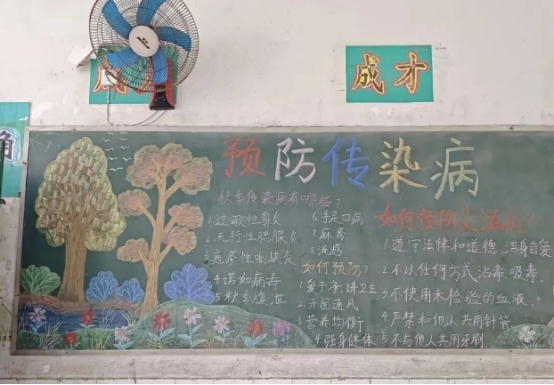 成才
预防传染病
秋季传染病有哪些?
1.过敏性鼻炎
2.流行性腮腺炎
3.病毒性咽炎
4.诺如病毒
5.秋季腹泻
6.手足口病
7.麻疹
8.流感
如何预防?
1.爱干净,讲卫生
2.开窗通风
3.营养均衡
4.强身健体
如何预防艾滋病?
1.遵守法律和道德,洁身自爱
2.不以任何方式沾毒、吸毒
3.不使用未检验的血液
4.严禁和他人共用针管
5.不与他人共用牙刷